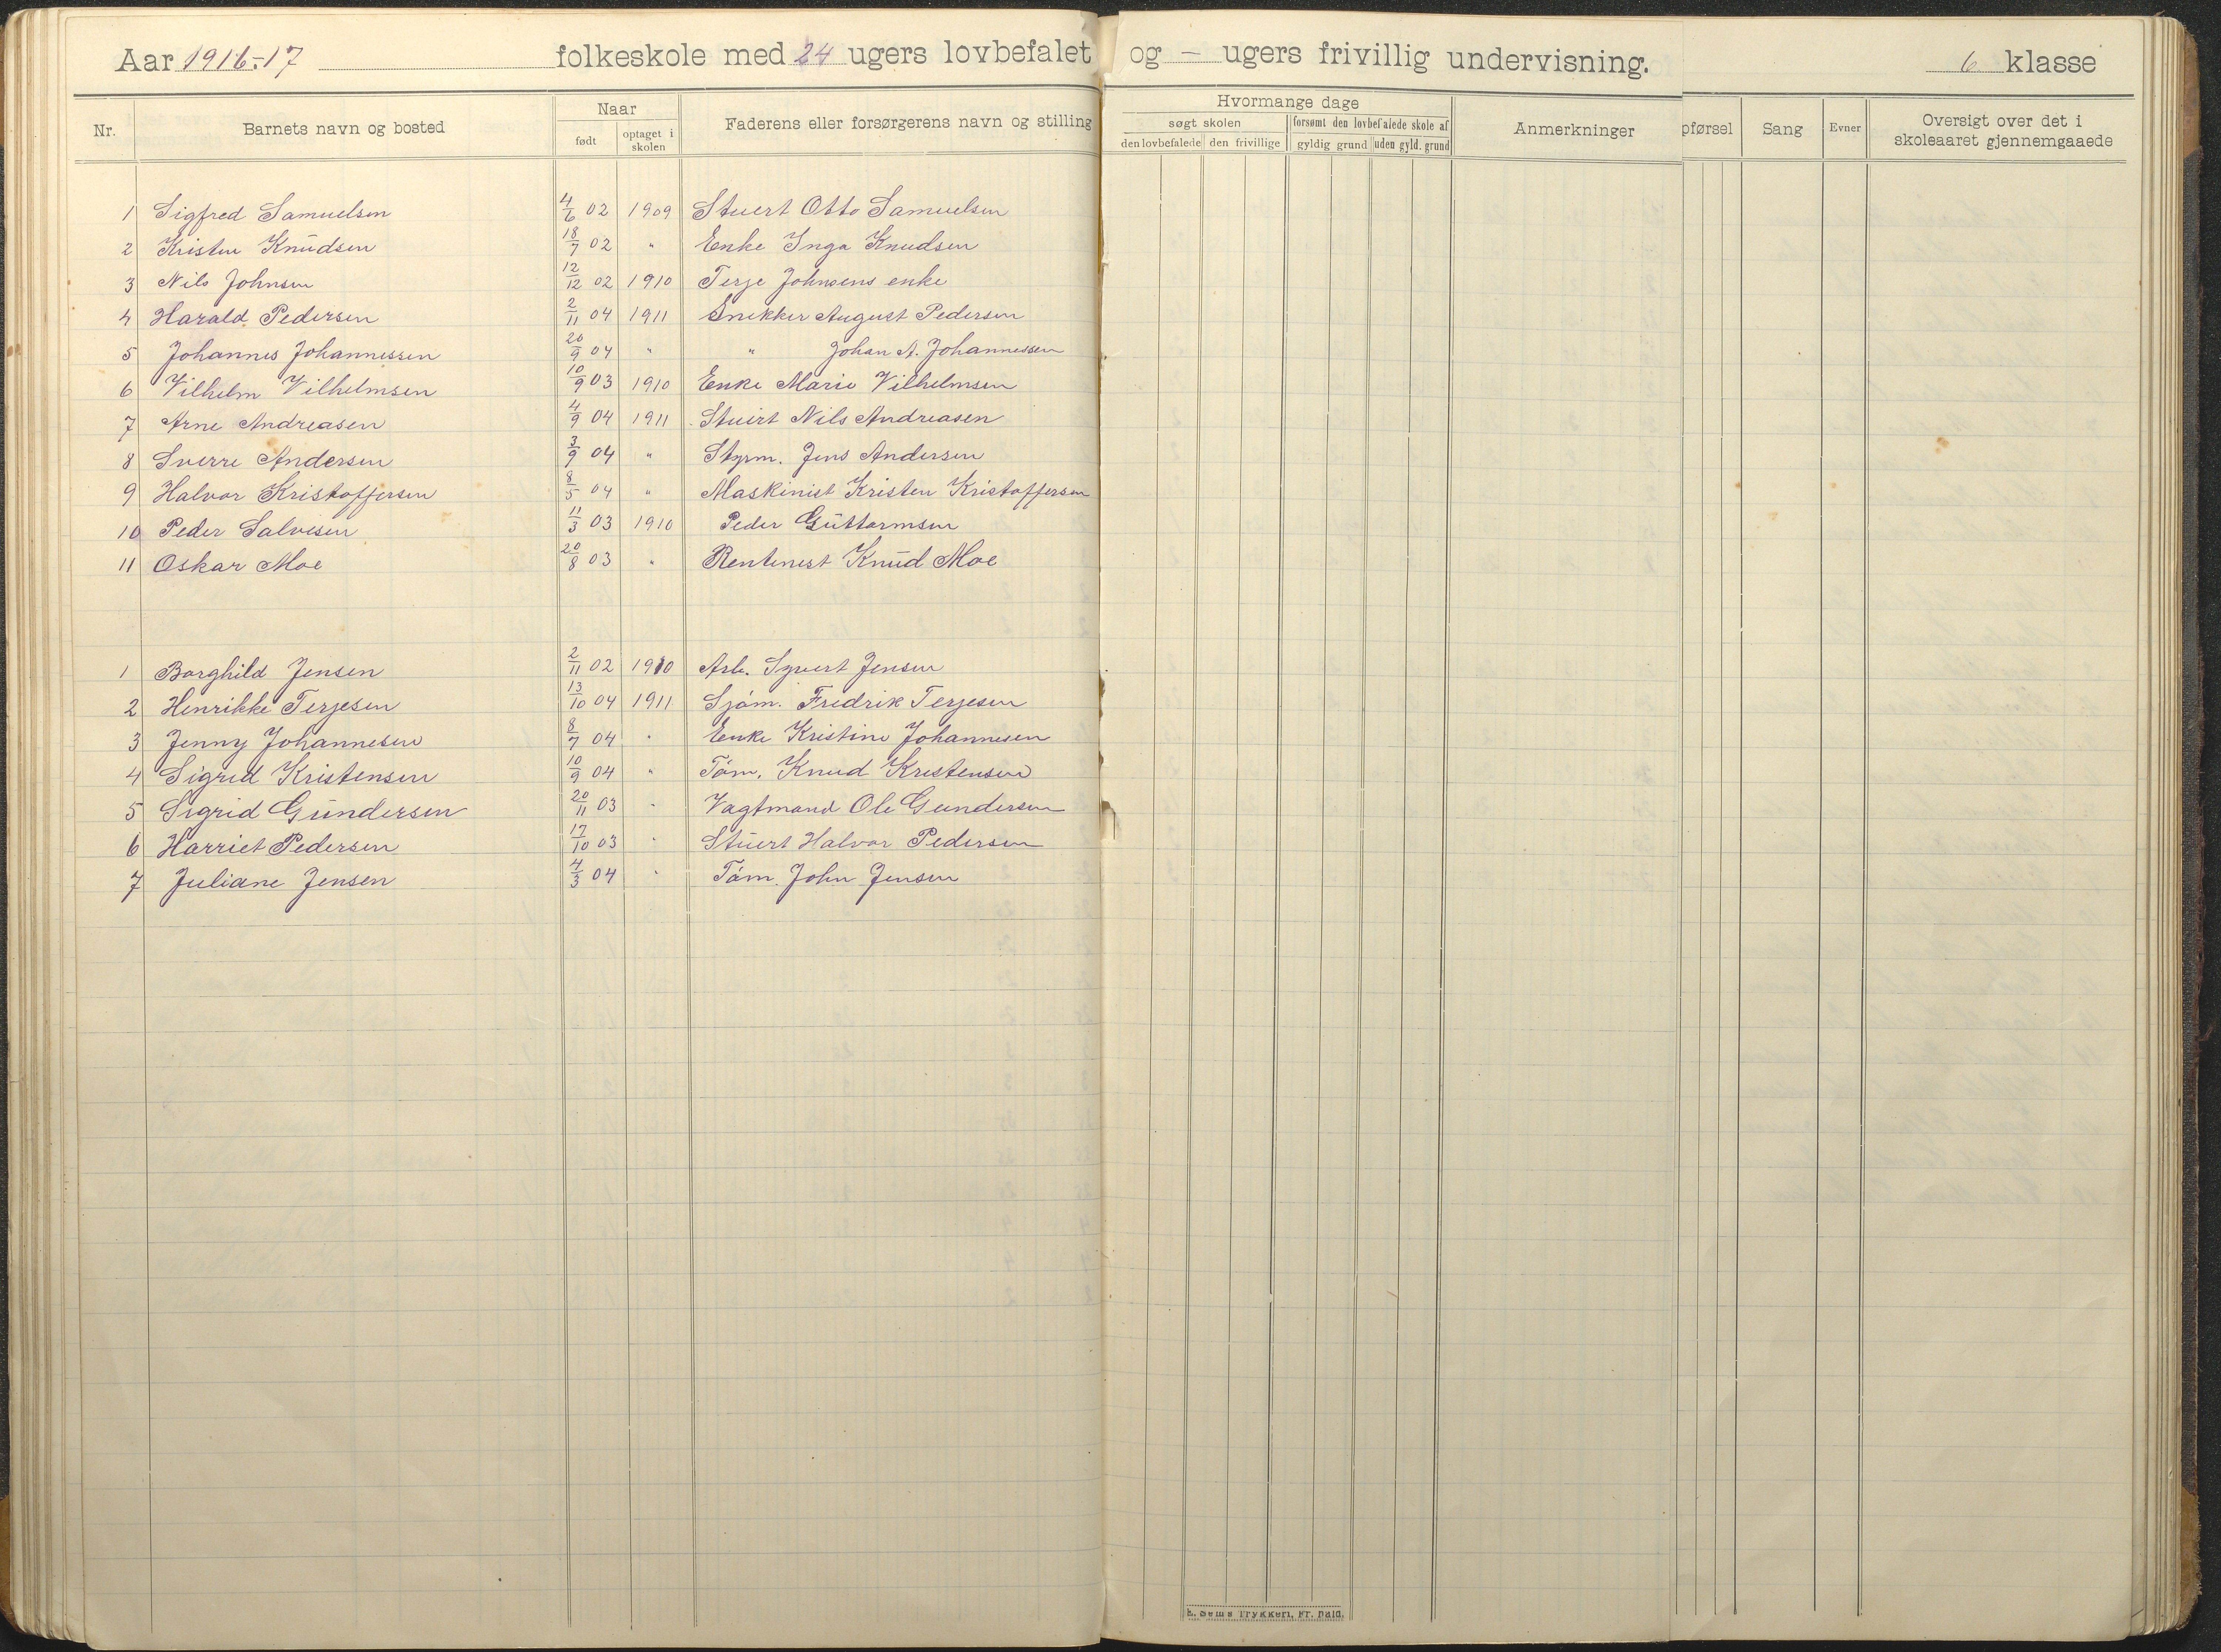 Aar 1916-17 folkeskole med 24 ugers lovbefalet og - ugers frivillig undervisning. 6 klasse
Nr. Barnets navn og bosted Naar født optaget i skolen Faderens eller forsørgerens navn og stilling Hvormange dage søgt skolen den lovbefalede den frivillige forsømt den lovbefalede skole af gyldig grund uden gyld. grund Anmerkninger pførsel Sang Evner Oversigt over det i skoleaaret gjennemgaaede
1 Sigfred Samuelsen 4/6 02 1909 Stuert Otto Samuelsen
2 Kristen Knudsen 18/7 02 " Enke Inga Knudsen
3 Nils Johnsen 12/12 02 1910 Terje Johnsens enke
4 Harald Pedersen 2/11 04 1911 Snekker August Pedersen
5 Johannes Johannessen 20/9 04 " " Johan A. Johannessen
6 Vilhelm Vilhelmsen 10/9 03 1910 Enke Marie Vilhelmsen
7 Arne Andreasen 4/9 04 1911 Stuert Nils Andreasen
8 Sverre Andersen 3/9 04 " Styrm. Jens Andersen
9 Halvor Kristoffersen 8/5 04 " Maskinist Kristen Kristoffersen
10 Peder Salvesen 11/3 03 1910 Peder Guttormsen
11 Oskar Moe 20/8 03 " Rentenest Knud Moe
1 Borghild Jensen 2/11 02 1910 Arb. Syvert Jensen
2 Henrikke Terjesen 13/10 04 1911 Sjøm. Fredrik Terjesen
3 Jenny Johannesen 8/7 04 " Enke Kristine Johannesen
4 Sigrid Kristensen 10/9 04 " Tøm. Knud Kristensen
5 Sigrid Gundersen 20/11 03 " Vagtmand Ole Gundersen
6 Harriet Pedersen 17/10 03 " Stuert Halvor Pedersen
7 Juliane Jensen 4/3 04 " Tøm. John Jensen